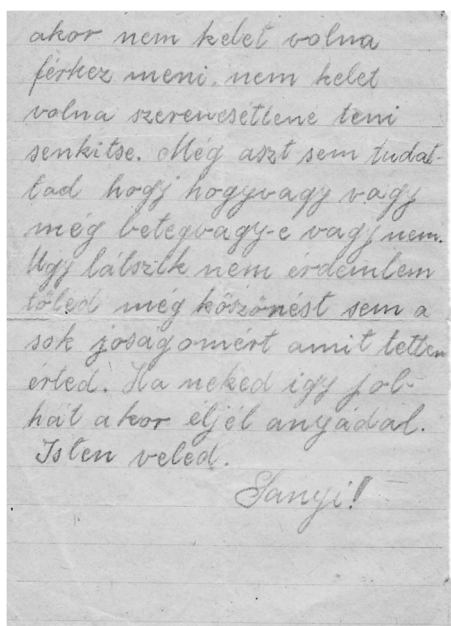 akor nem kelet volna
férhez meni, nem kelet
volna szerencsétlené teni
senkitse. Még aszt sem tudat-
tad hogj hogyvagy vagy
még betegvagy-e vagj nem.
Ugy látszik nem érdemlem
töled még köszönést sem a
sok joságomért amit tettem
érted. Ha neked igy jol-
hát akor éljél anyádal.
Isten veled.
Sanyi!